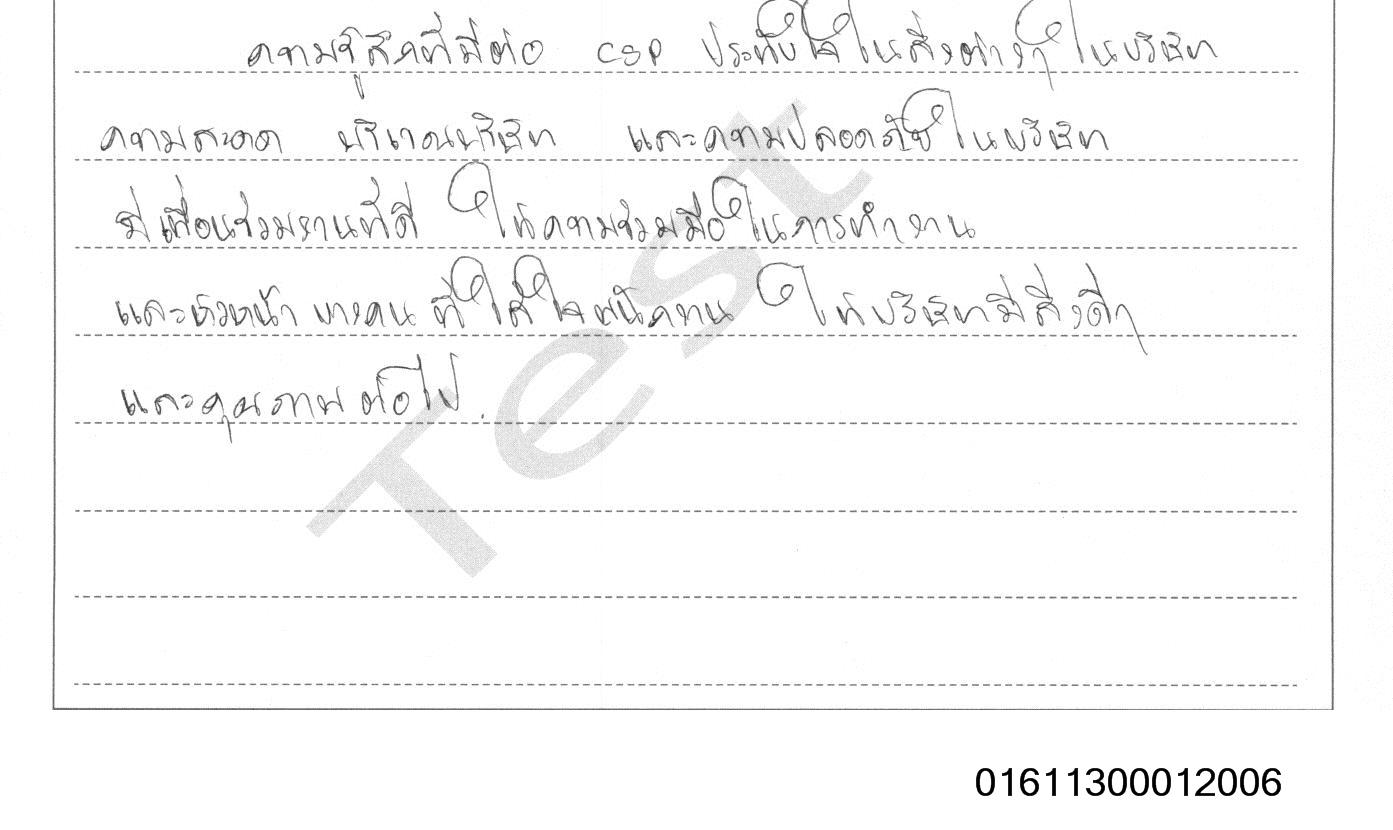 ความรู้สึกที่มีต่อ CSP ประทับใจในสิ่งต่างๆ ในบริษัท
ความสะอาด บริเวณบริษัท และความปลอดภัยในบริษัท
มีเพื่อนร่วมงานที่ดี ให้ความร่วมมือในการทำงาน
และหัวหน้า บางคน ที่ใส่ใจพนักงาน ให้บริษัทมีสิ่งดีๆ
และคุณภาพต่อไป.
Test
01611300012006